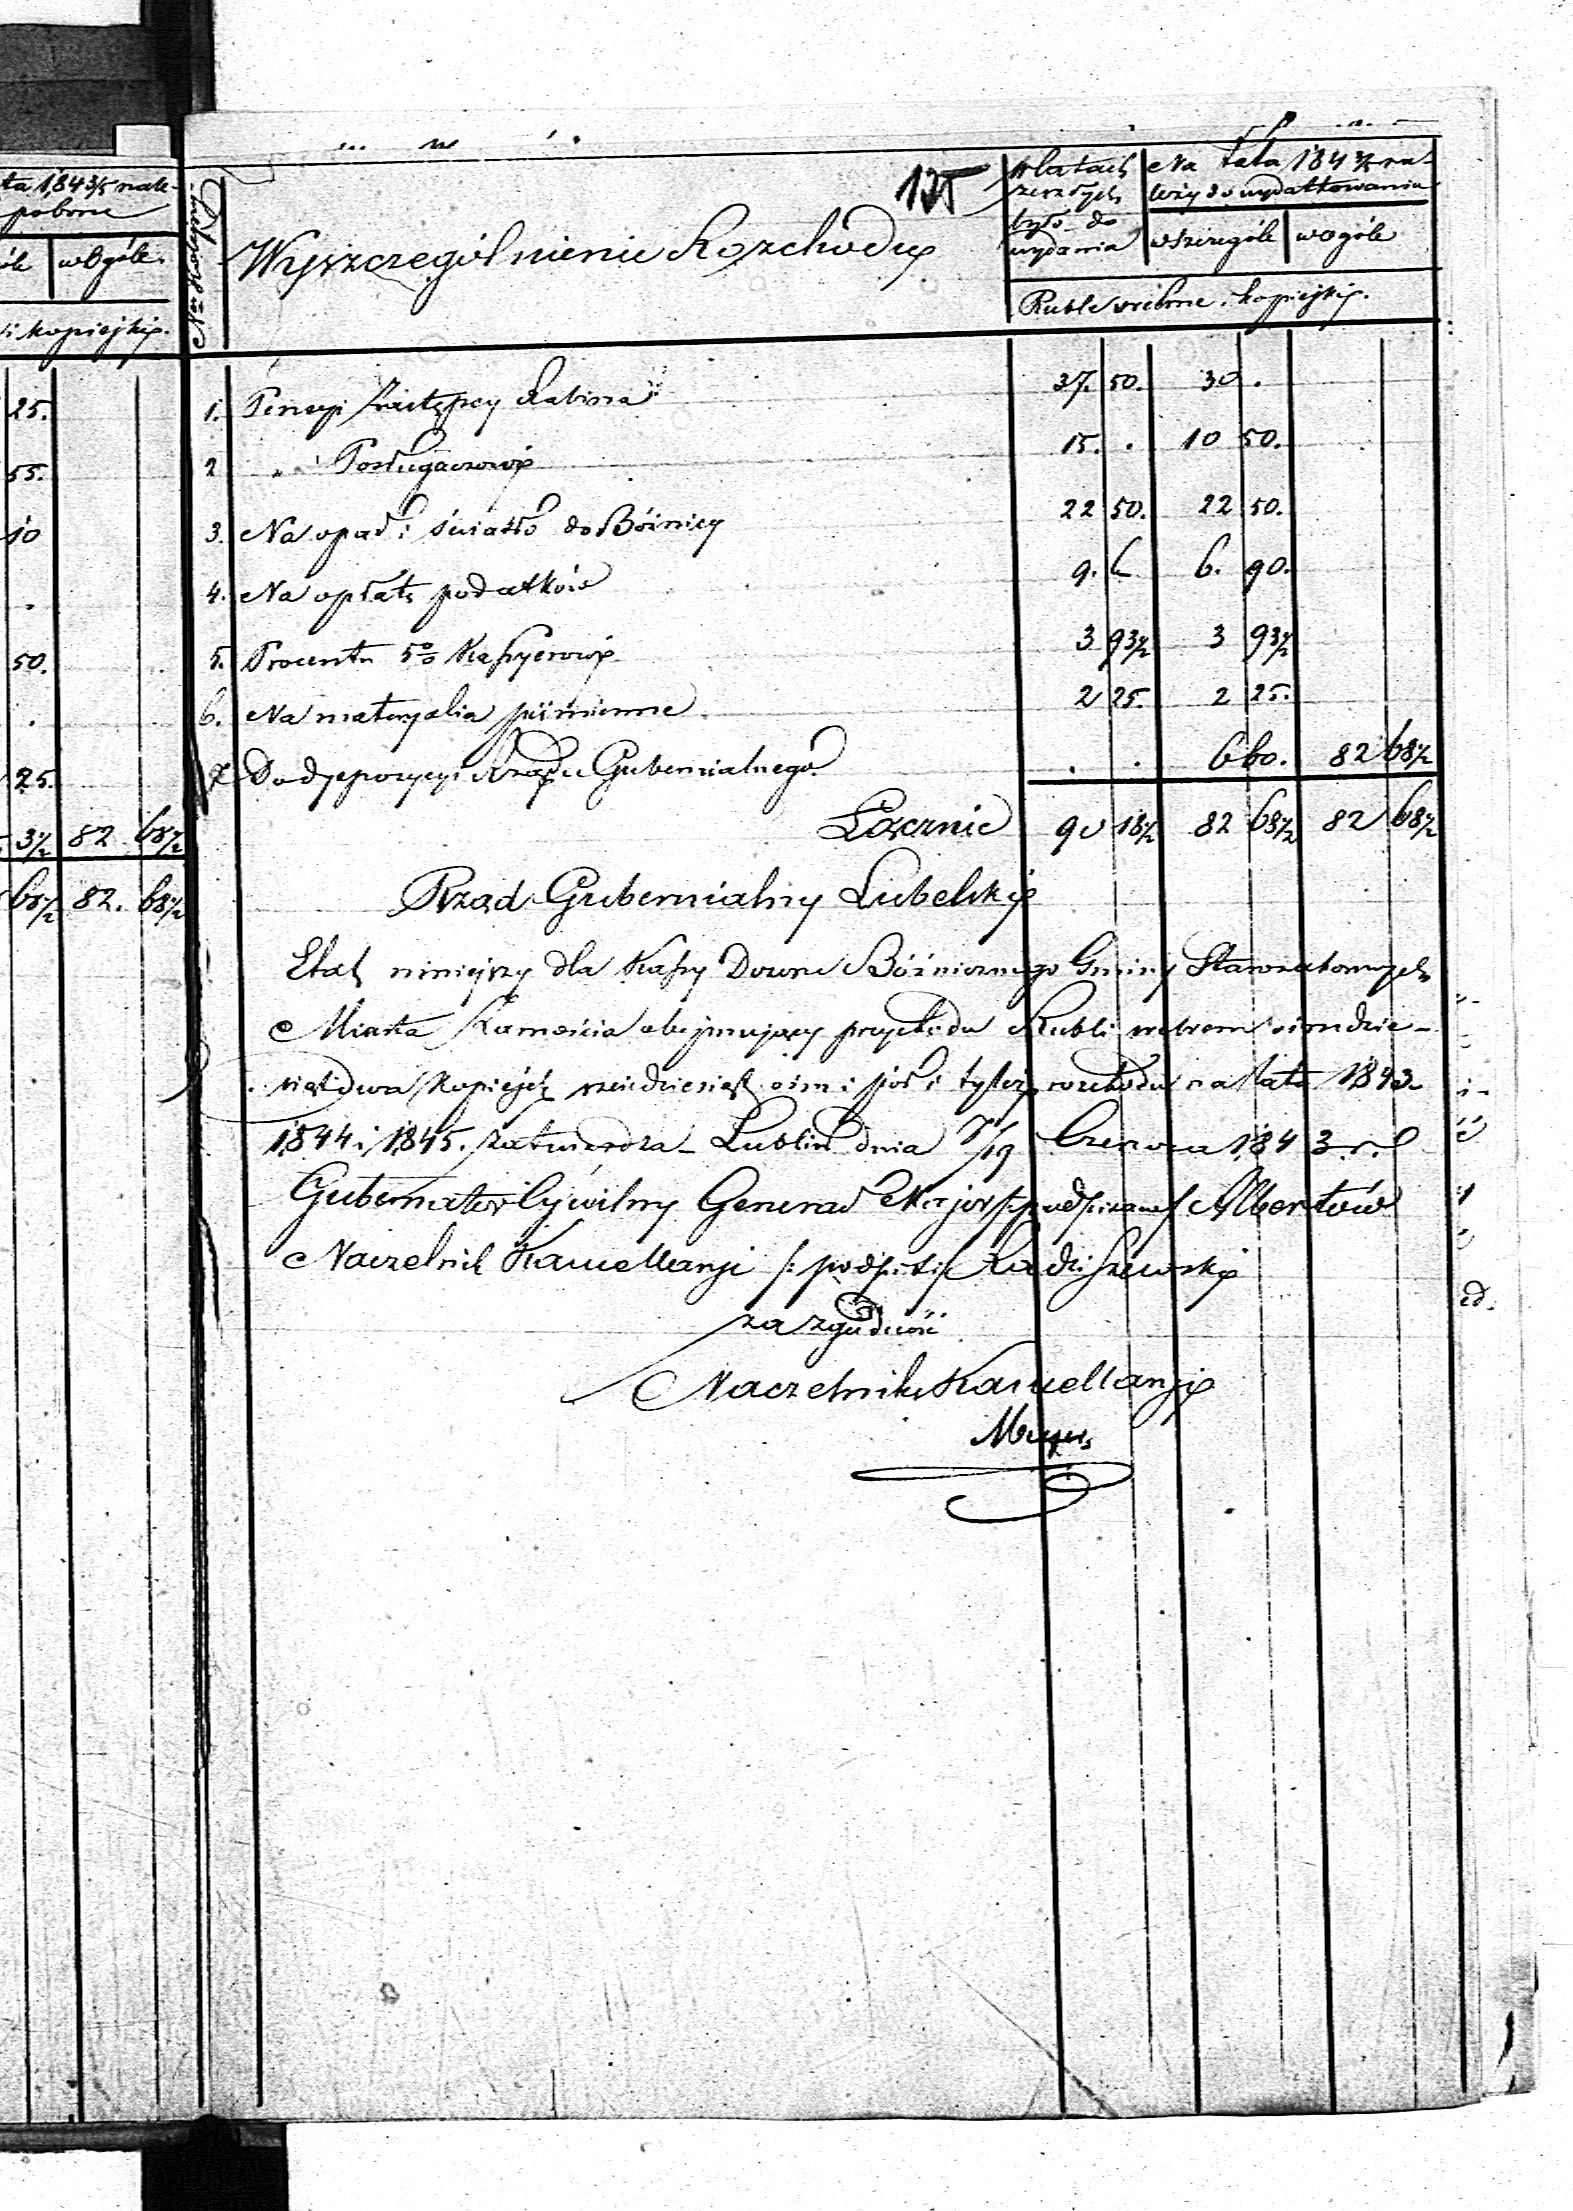 ta 1843/5 nale-
pobore
wOgóle
i kopiejki.
25.
55.
10
50.
25.
3½ 82 68½
68½ 82. 68½
135
Ner Kolejny
Wyszczególnienie Rozchodu
W latach zeszłych było do wydania
Na lata 1843/5 na-
leży do wydatkowania
wszczególe wogóle
Ruble srebrne i kopiejki.
1. Pensyi Zastępcy Rabina 37. 50. 30.
2 " Posługaczowi 15. . 10 50.
3. Na opał i światło do Bóżnicy 22 50. 22 50.
4. Na opłatę podatków 9. 6. 90.
5. Procentu 5% Kassyerowi 3 93½ 3 93½
6. Na materyalia piśmienne 2 25. 2 25.
7. Do dyspozycyi Rządu Gubernialnego . . 6 60. 82 68½
Łącznie 90 18½ 82 68½ 82 68½
Rząd Gubernialny Lubelski
Etat niniejszy dla Kassy Dozoru Bóżnicznego Gminy Starozakonnych
Miasta Zamościa obejmujący przychodu Rubli srebrem ośmdzie-
siąt dwa Kopiejek sześćdziesiąt ośm i pół i tyleż rozchodu na lata 1843
1844 i 1845. zatwierdza - Lublin dnia 7/19 Czerwca 1843 r.
Gubernator Cywilny Generał Major /: podpisano :/ Albertów
Naczelnik Kancellaryi /: podpis :/ Radziszewski
za zgodność
Naczelnik Kancellaryi